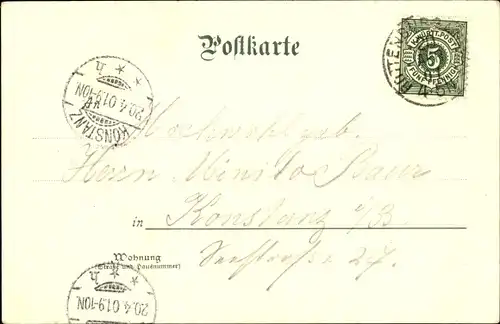 Postkarte
K. WÜRTT. POST
5
FÜNF PFENNIG
4-5
KONSTANZ
20.4.01.9-10N.
Hochwohlgeb.
Herrn
Baur
in Konstanz a/B.
Wohnung
(Straße und Hausnummer)
Seestrasse 27.
20.4.01.9-10N.